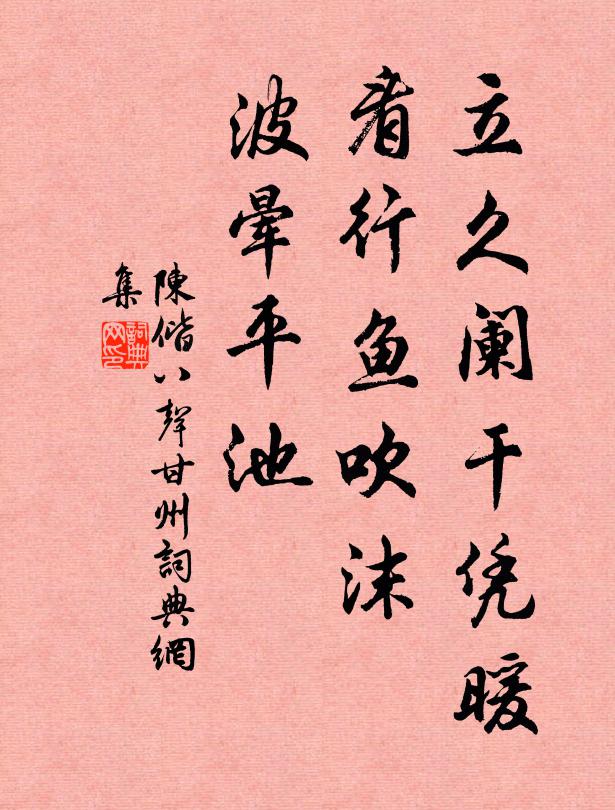 立久阑干凭暖
看行鱼吹沫
波晕平池
陳偕八聲甘州詞典網
集
詞典網印